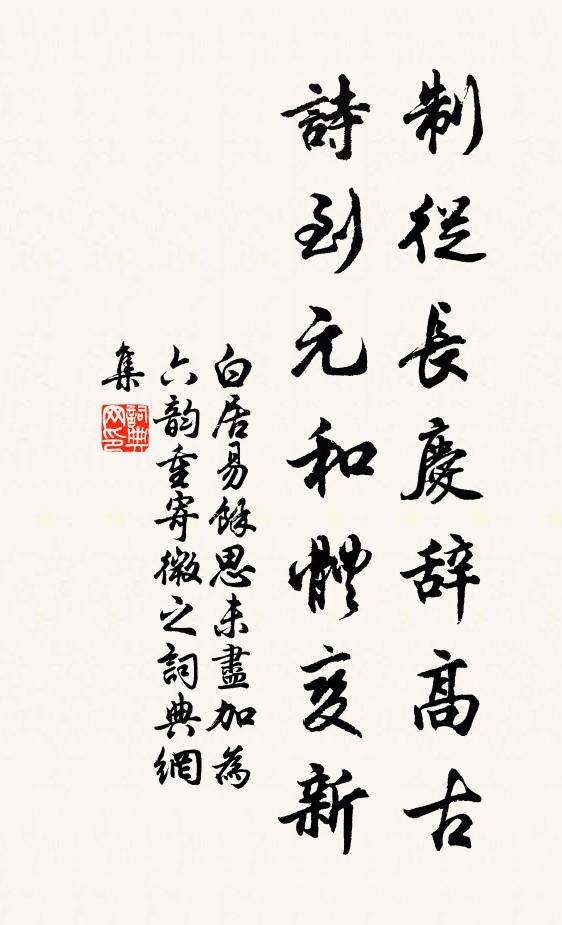 制從長慶辞高古
詩到元和體变新
白居易餘思未盡加為
六韵重寄微之詞典網
集
詞典网印